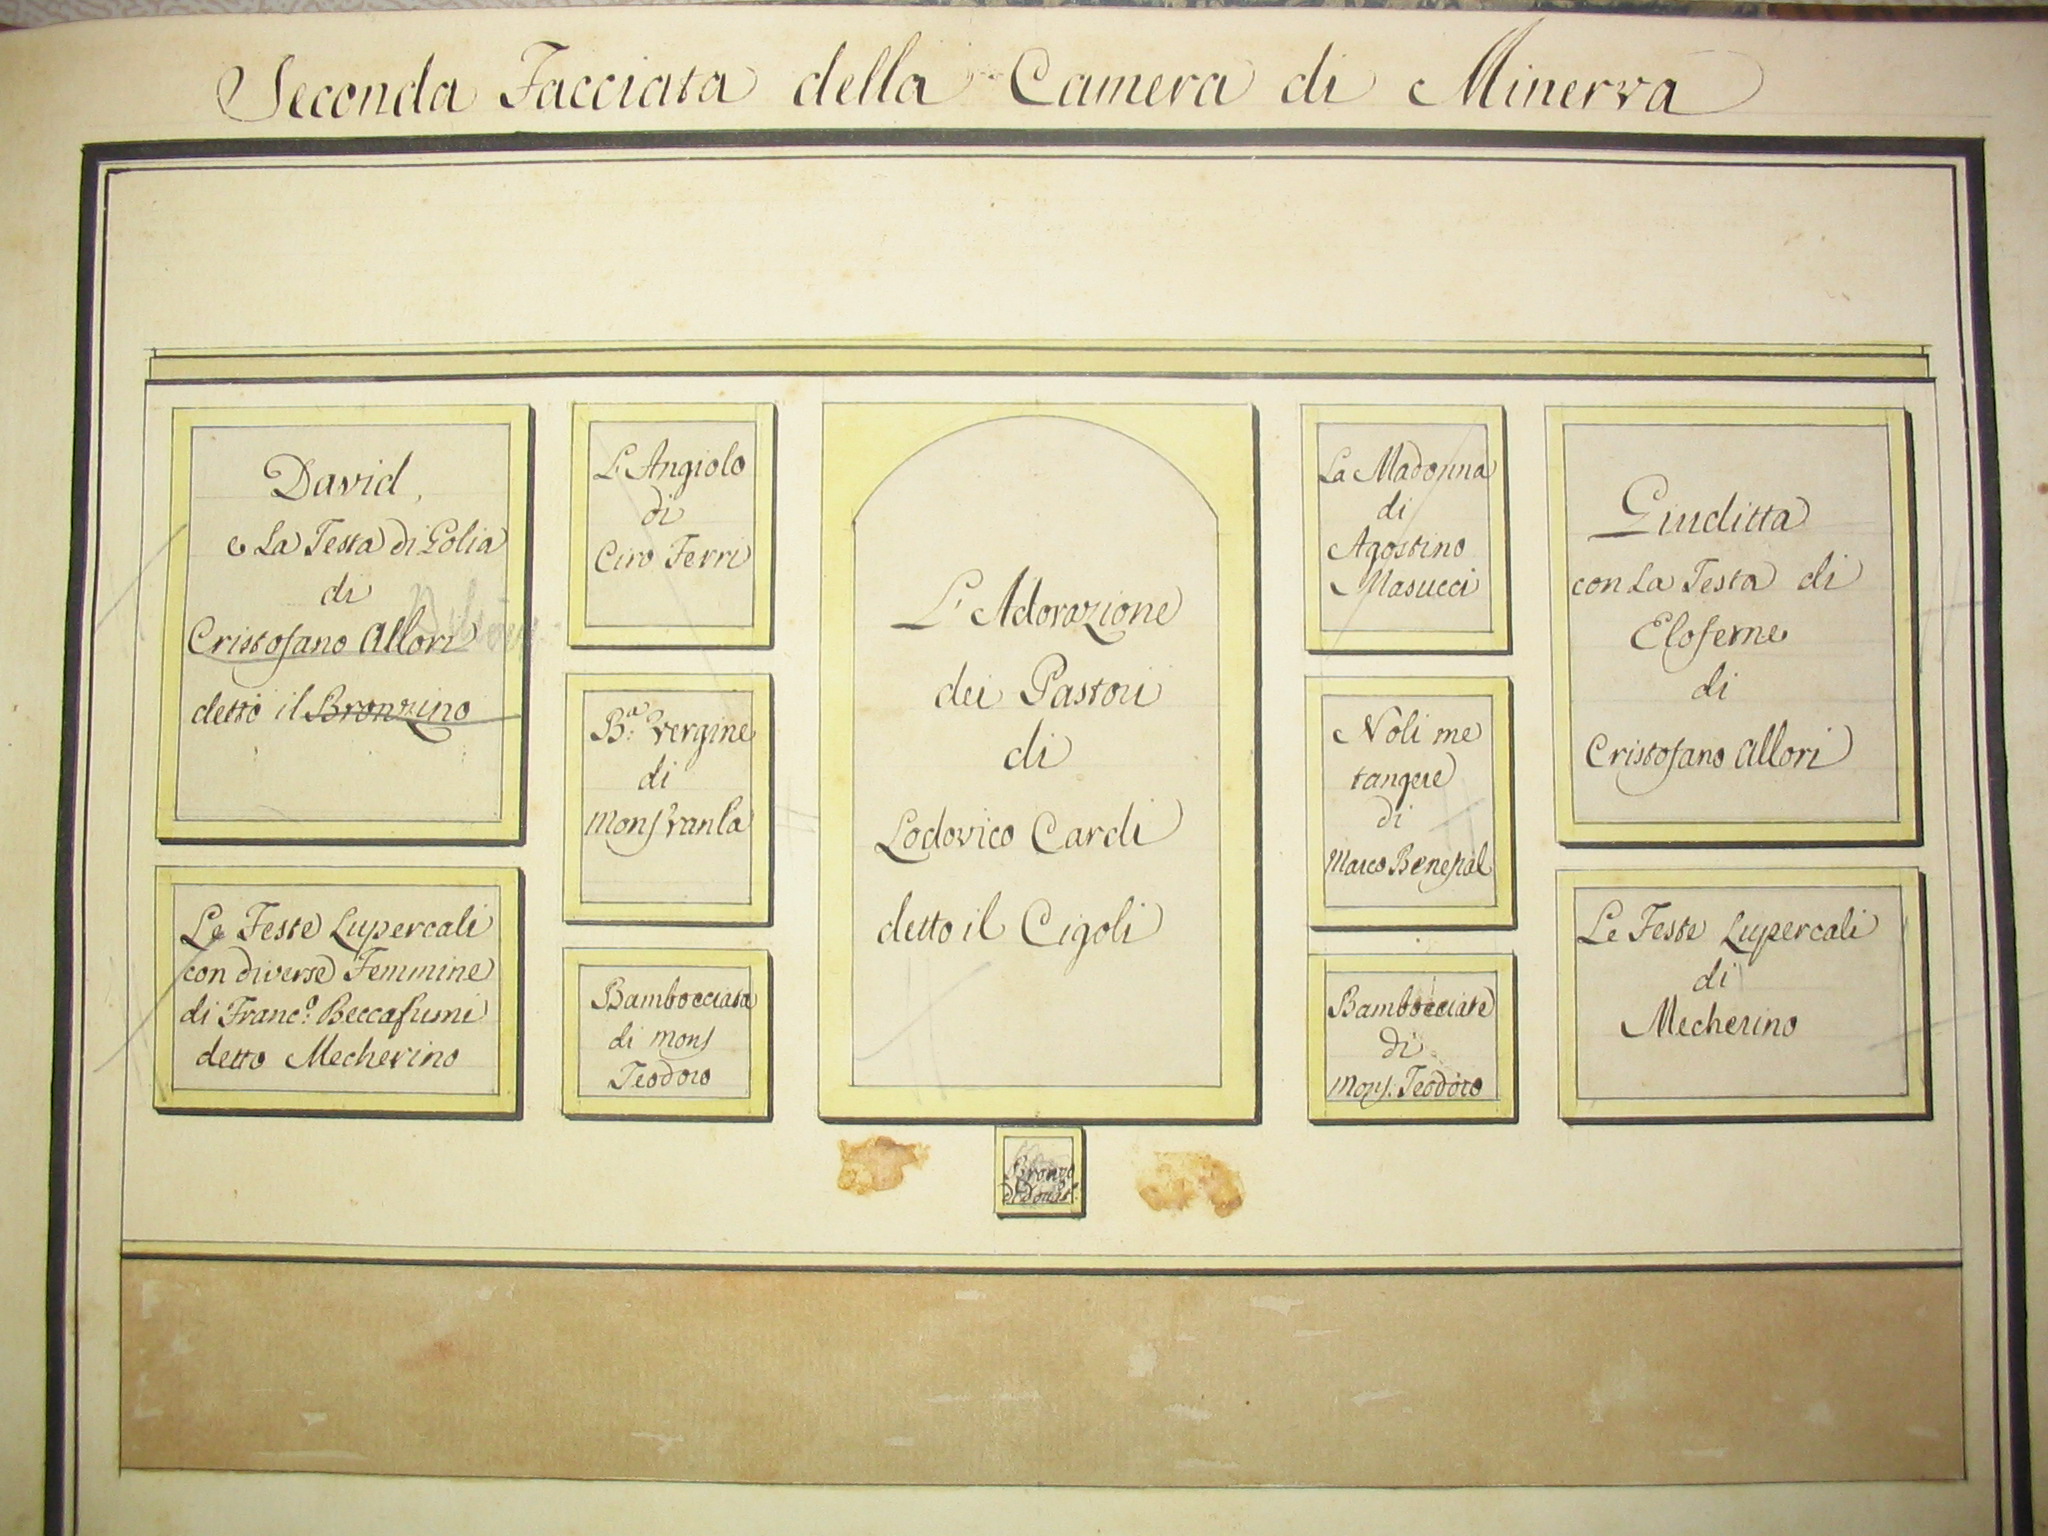 Seconda Facciata della Camera di Minerva
David,
e La Testa di Golia
di
Cristofano Allori
detto il Bronzino
Le Feste Lupercali
con diverse Femmine
di Franc.o Beccafumi
detto Mecherino
L'Angiolo
di
Ciro Ferri
B.a Vergine
di
Mons Vanla
Bambocciata
di Mons
Teodoro
L'Adorazione
dei Pastori
di
Lodovico Cardi
detto il Cigoli
Bronzo
di
La Madonna
di
Agostino
Masucci
Noli me
tangere
di
Marco Benefial
Bambocciate
di
Mons. Teodoro
Giuditta
con La Testa di
Eloferne
di
Cristofano Allori
Le Feste Lupercali
di
Mecherino